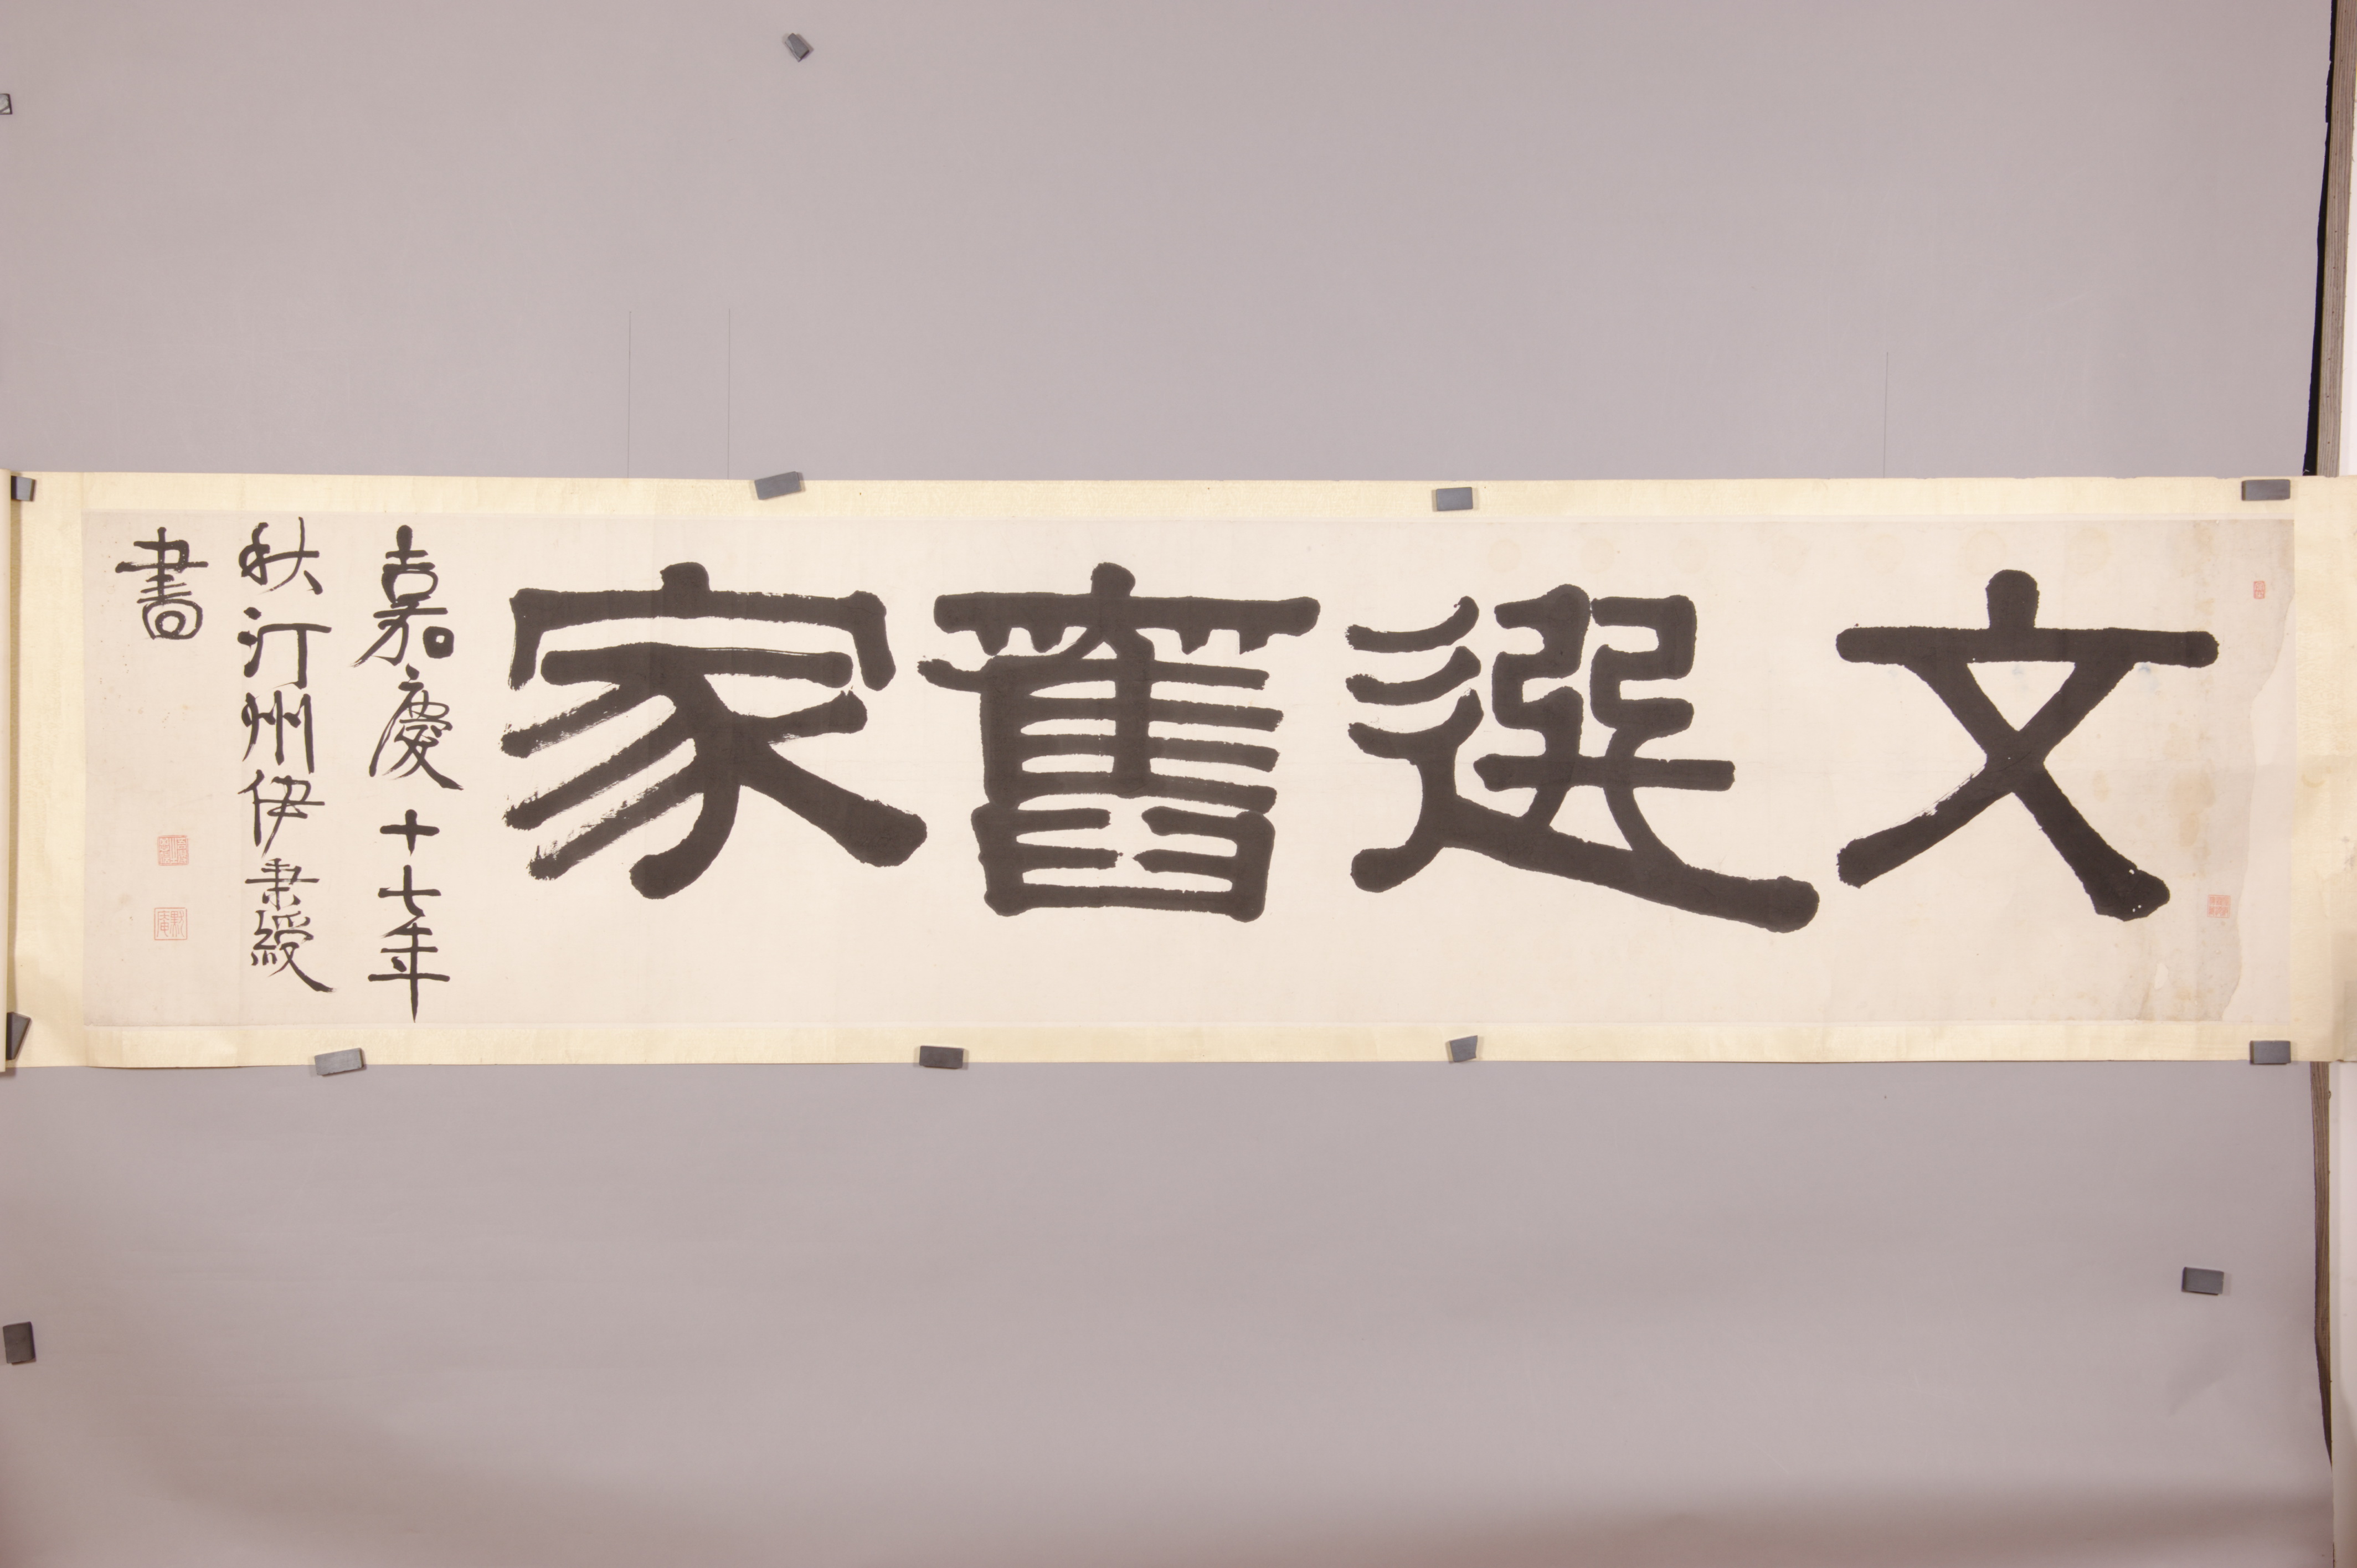 文選舊家
嘉慶十七年
秋汀州伊秉綬
書